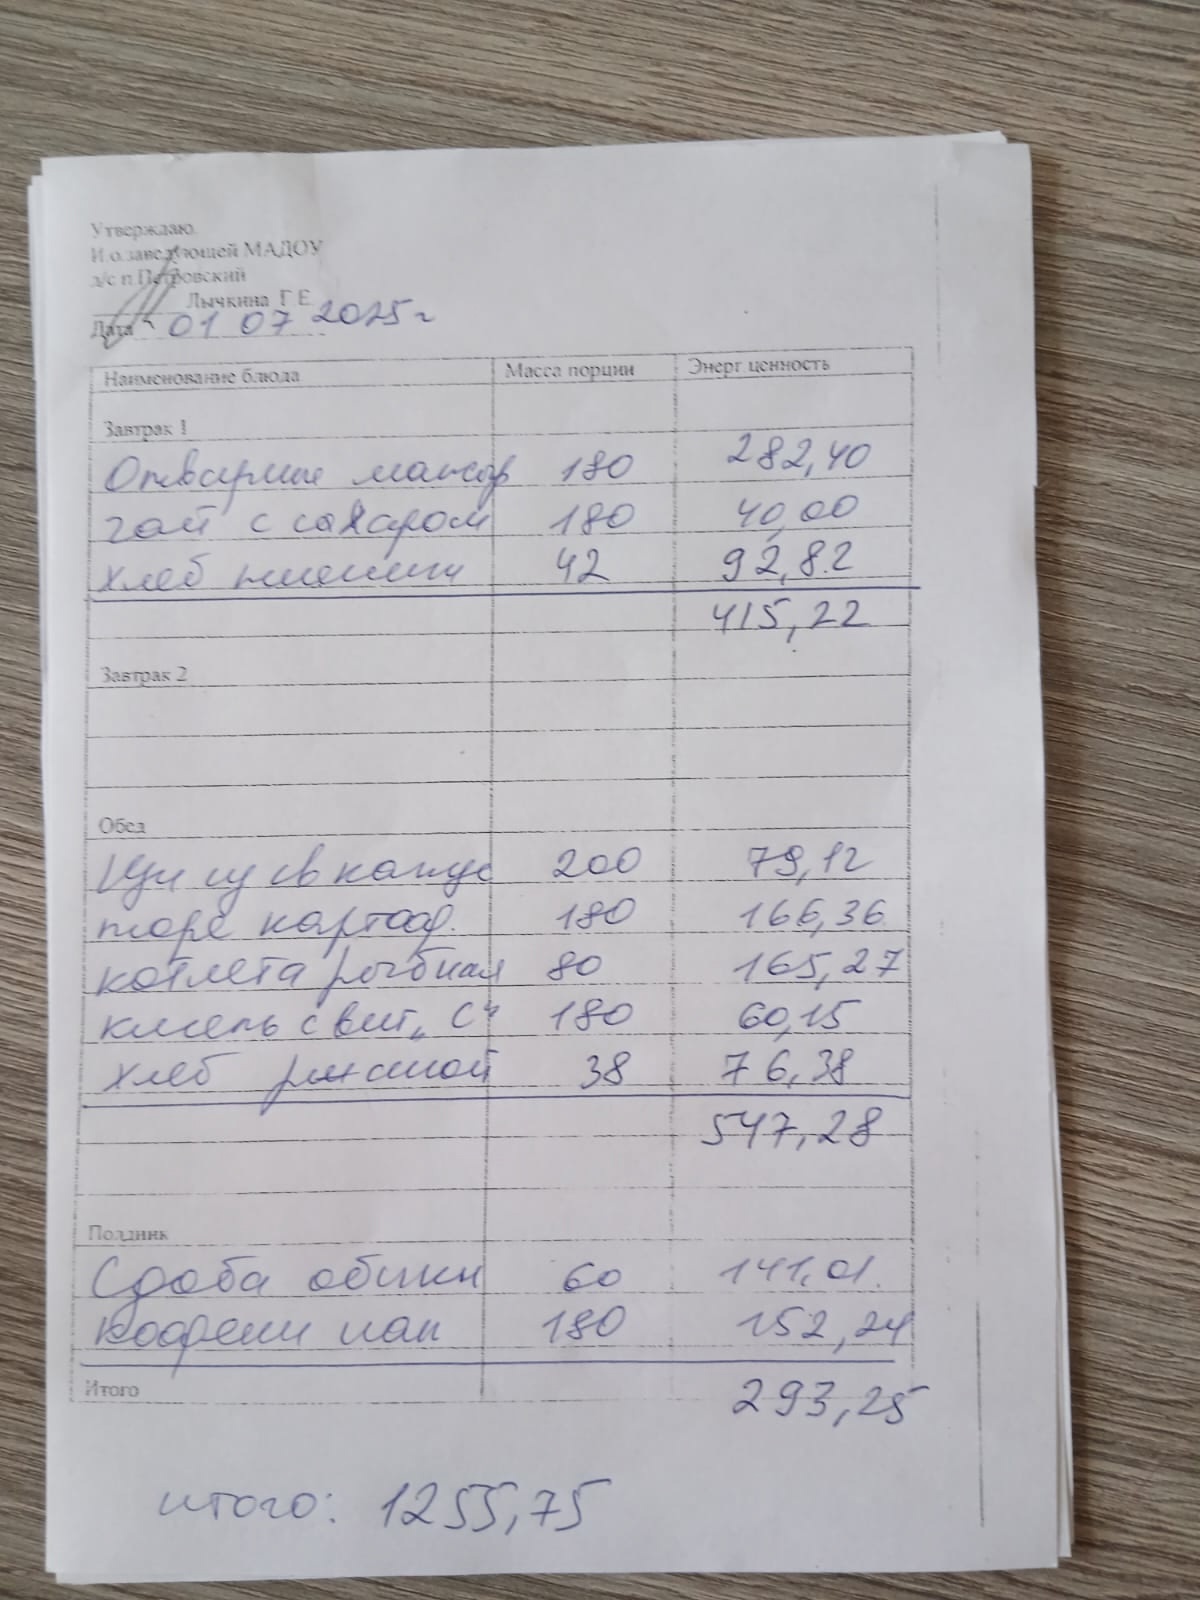 Утверждаю.
И.о.заведующей МАДОУ
д/с п.Петровский
Лычкина Г Е
Дата 01 07 2025г
Наименование блюда Масса порции Энерг ценность
Завтрак 1
Отварные макар 180 282,40
чай с сахаром 180 40,00
хлеб пшенич 42 92,82
415,22
Завтрак 2
Обед
Щи из св капус 200 79,12
пюре картоф. 180 166,36
котлета рыбная 80 165,27
кисель с вит „С" 180 60,15
хлеб ржаной 38 76,38
547,28
Полдник
Сдоба обыкн 60 141,01.
Кофейн нап 180 152,24
Итого 293,25
итого: 1255,75